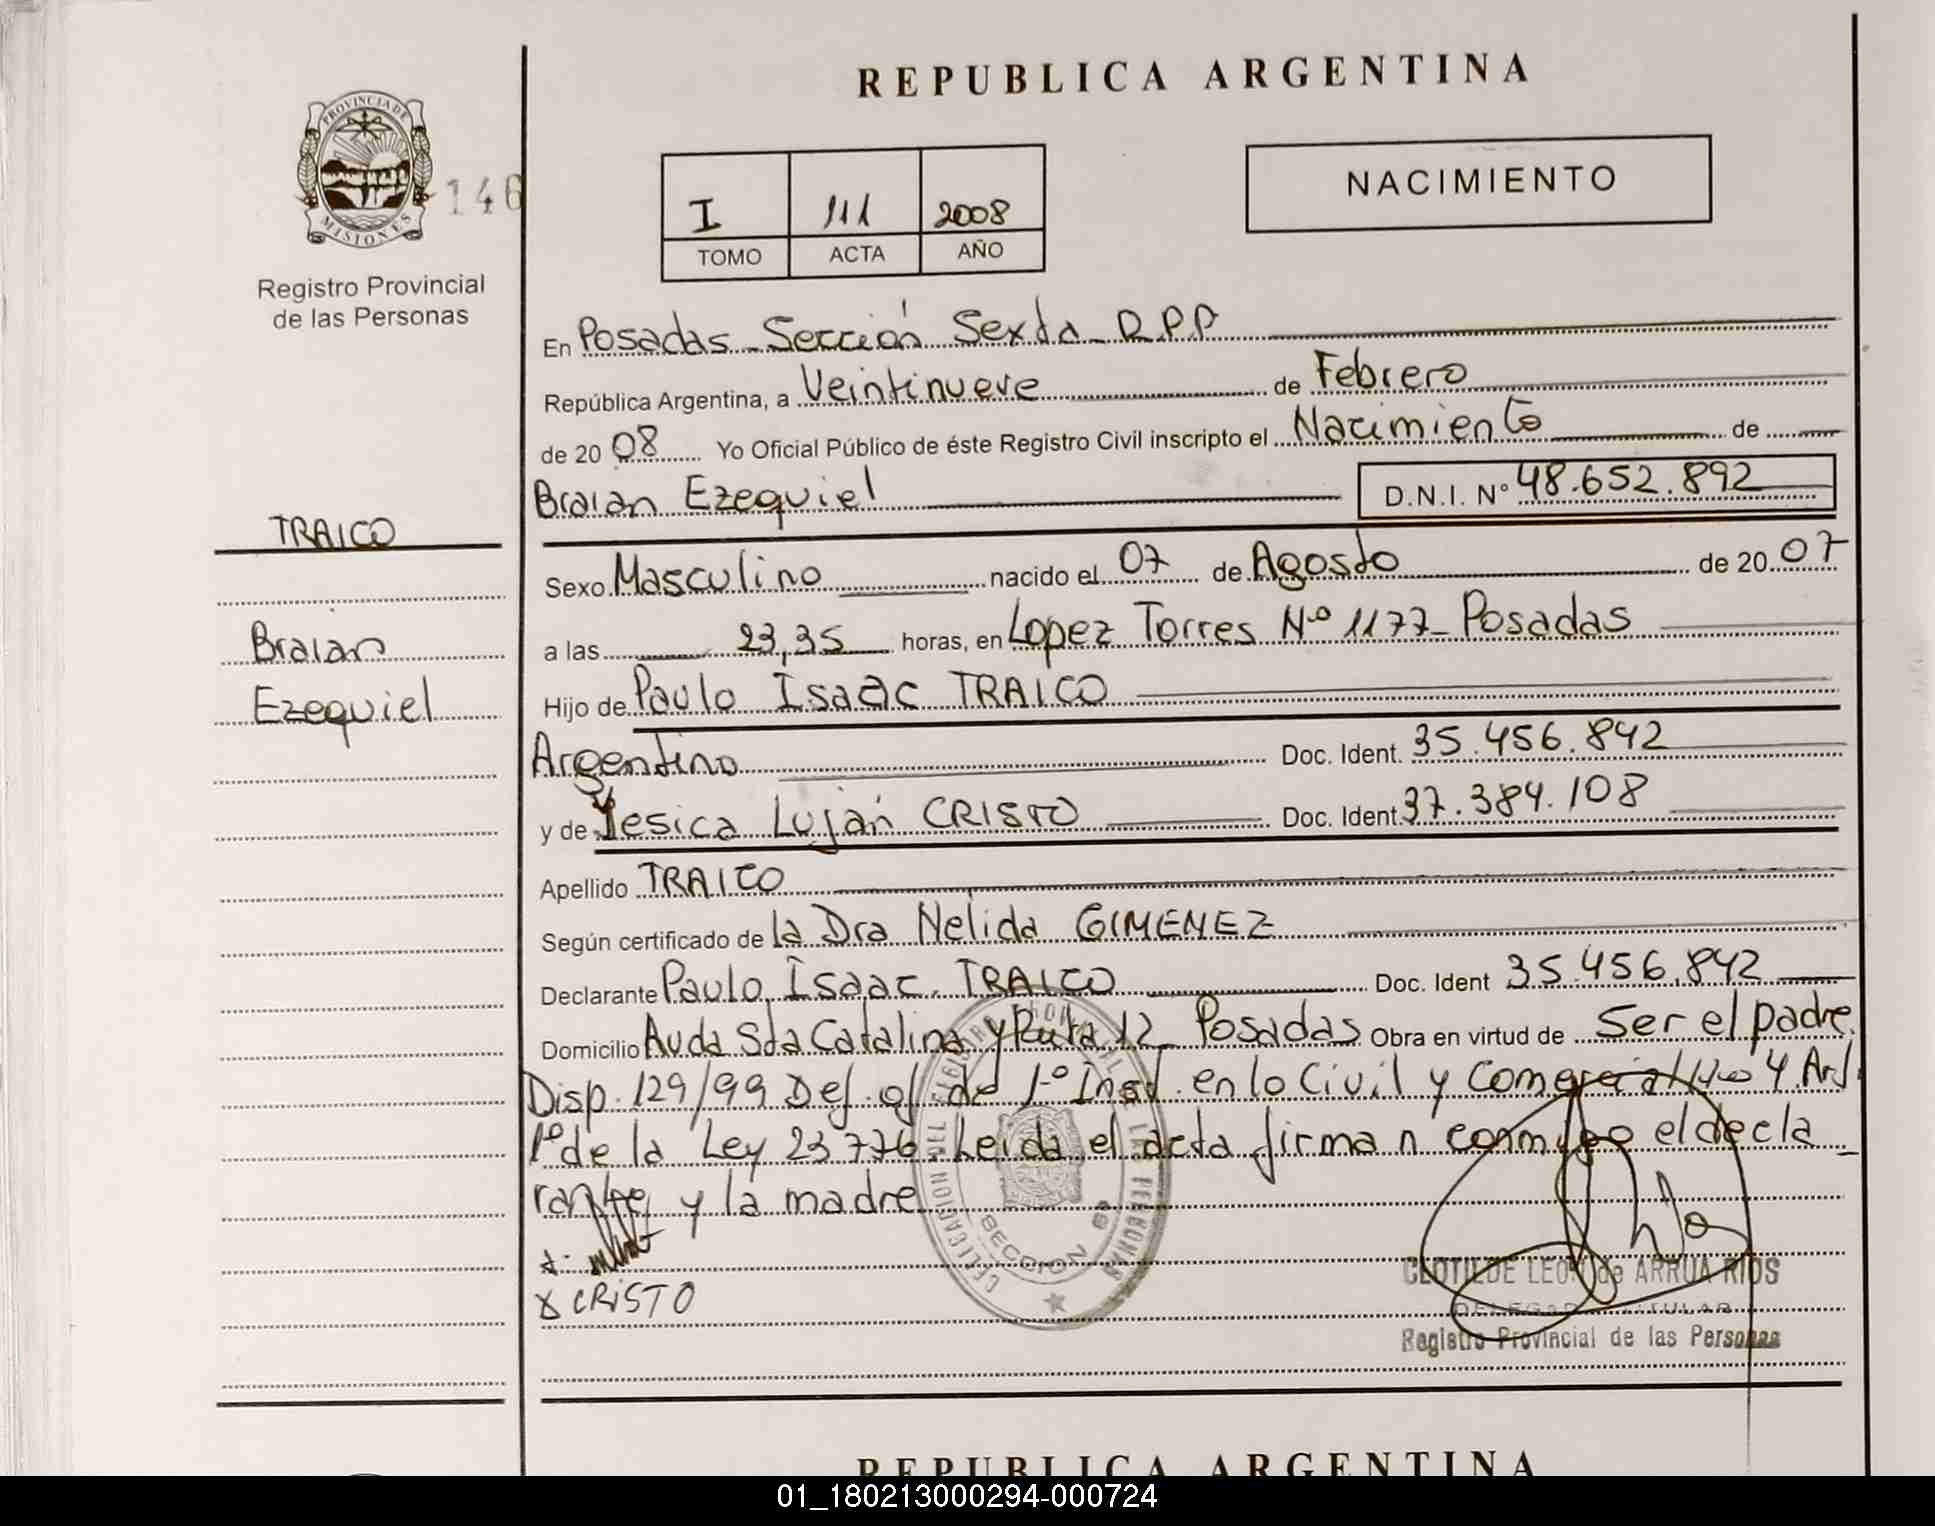 REPUBLICA ARGENTINA
PROVINCIA DE MISIONES
146
Registro Provincial
de las Personas
I 111 2008
TOMO ACTA AÑO
NACIMIENTO
En Posadas - Sección Sexta - R.P.P.
República Argentina, a Veintinueve de Febrero
de 2008 Yo Oficial Público de éste Registro Civil inscripto el Nacimiento de
Braian Ezequiel D.N.I. N° 48.652.892
TRAICO
Braian
Ezequiel
Sexo Masculino nacido el 07 de Agosto de 2007
a las 23,35 horas, en Lopez Torres Nº 1177- Posadas
Hijo de Paulo Isaac TRAICO
Argentino Doc. Ident. 35.456.842
y de Yesica Luján CRISTO Doc. Ident. 37.384.108
Apellido TRAICO
Según certificado de la Dra Nelida GIMENEZ
Declarante Paulo Isaac TRAICO Doc. Ident 35.456.842
Domicilio Avda Sta Catalina y Ruta 12 Posadas Obra en virtud de Ser el padre.
Disp. 129/99 Def. of. de 1º Inst. en lo Civil y Comercial Nº 4 Art.
1º de la Ley 23776. Leida el acta firman conmigo el decla
rante y la madre
x CRISTO
SECCION 6ª
CLOTILDE LEON de ARRUA RIOS
DELEGADA TITULAR
Registro Provincial de las Personas
REPUBLICA ARGENTINA
01_180213000294-000724